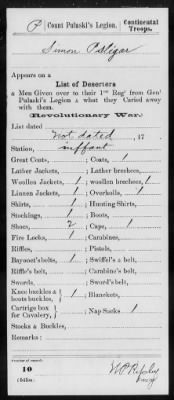 P | Count Pulaski's Legion. | Continental Troops.
Simon
Appears on a
List of Deserters
& Men Given over to their 1st Regt from Genl
Pulaski's Legion & what they Caried away
with them.
Revolutionary War.
List dated Not dated, 17 .
Station, inffant
Great Coats, ; Coats, 1
Lather Jackets, ; Lather breeches,
Woollen Jackets, 1 ; woollen breeches, 1
Linnen Jackets, ; Overholls, 1
Shirts, 1 ; Hunting Shirts,
Stockings, 1 ; Boots,
Shoes, 2 ; Caps, 1
Fire Locks, 1 ; Carabines,
Riffles, ; Pistols,
Bayonet's belts, 1 ; Swiffel's belt,
Riffle's belt, ; Carabine's belt,
Swords, ; Sword's belt,
Knee buckles & boots buckles, 1 ; Blanckets,
Cartrige box for Cavalery, 1 ; Nap Sacks 1
Stocks & Buckles,
Remarks:
10